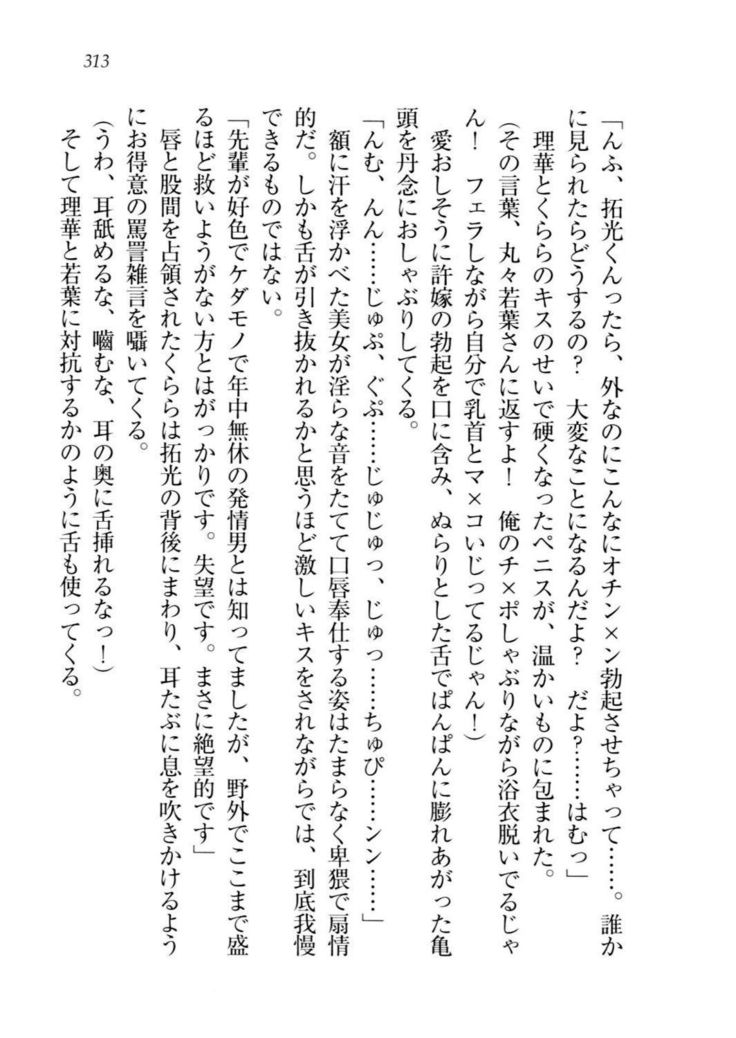 313
「んふ、拓光くんったら、外なのにこんなにオチン×ン勃起させちゃって……。誰か
に見られたらどうするの？　大変なことになるんだよ？　だよ？……はむっ」
理華とくららのキスのせいで硬くなったペニスが、温かいものに包まれた。
（その言葉、丸々若葉さんに返すよ！　俺のチ×ポしゃぶりながら浴衣脱いでるじゃ
ん！　フェラしながら自分で乳首とマ×コいじってるじゃん！）
愛おしそうに許嫁の勃起を口に含み、ぬらりとした舌でぱんぱんに膨れあがった亀
頭を丹念におしゃぶりしてくる。
「んむ、んん……じゅぷ、ぐぷ……じゅじゅっ、じゅっ……ちゅぴ……ンン……」
額に汗を浮かべた美女が淫らな音をたてて口唇奉仕する姿はたまらなく卑猥で扇情
的だ。しかも舌が引き抜かれるかと思うほど激しいキスをされながらでは、到底我慢
できるものではない。
「先輩が好色でケダモノで年中無休の発情男とは知ってましたが、野外でここまで盛
るほど救いようがない方とはがっかりです。失望です。まさに絶望的です」
唇と股間を占領されたくららは拓光の背後にまわり、耳たぶに息を吹きかけるよう
にお得意の罵詈雑言を囁いてくる。
（うわ、耳舐めるな、嚙むな、耳の奥に舌挿れるなっ！）
そして理華と若葉に対抗するかのように舌も使ってくる。